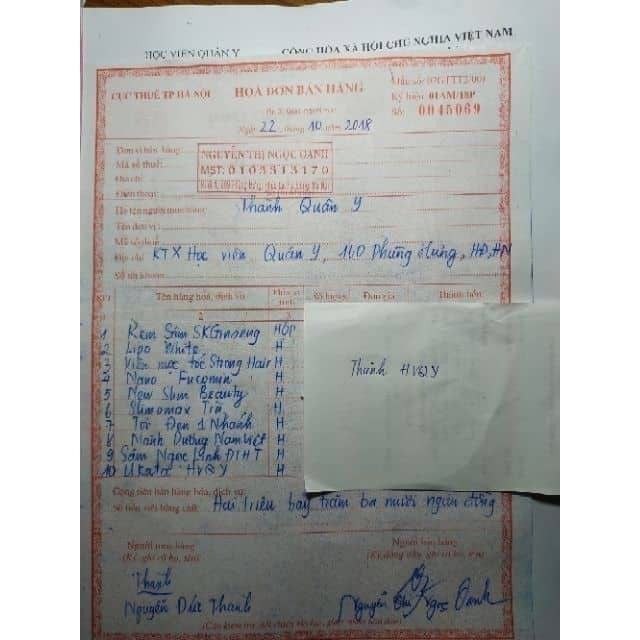 HỌC VIỆN QUÂN Y CỘNG HÒA XÃ HỘI CHỦ NGHĨA VIỆT NAM
CỤC THUẾ TP HÀ NỘI
HOÁ ĐƠN BÁN HÀNG
Ký hiệu: 01AM/18P
Số: 0045069
Ngày 22 tháng 10 năm 2018
Đơn vị bán hàng:
NGUYỄN THỊ NGỌC OANH
Mã số thuế:
MST: 0103313170
Địa chỉ:
Điện thoại:
Họ tên người mua hàng: Thành Quân Y
Tên đơn vị:
Mã số thuế:
Địa chỉ: KTX Học viện Quân Y, 160 Phùng Hưng, HĐ, HN
Số tài khoản:
STT Tên hàng hoá, dịch vụ Số lượng Đơn giá Thành tiền
2 3
1 Kem Sâm SKGinseng HỘP
2 Lipo White H
3 Viên mọc tóc Strong Hair H
4 Nano Fucomin H
5 New Slim Beauty H
6 Slimomax H
7 Tỏi Đen 1 Nhánh H
8 Nành Dưỡng Nam Việt H
9 Sâm Ngọc Linh H
10 HVQY H
Thành HVQY
Cộng tiền bán hàng hóa, dịch vụ:
Số tiền viết bằng chữ: Hai triệu bảy trăm ba mươi ngàn đồng
Người mua hàng Người bán hàng
(Ký, ghi rõ họ, tên)
Thành
Nguyễn Đức Thành Nguyễn Thị Ngọc Oanh